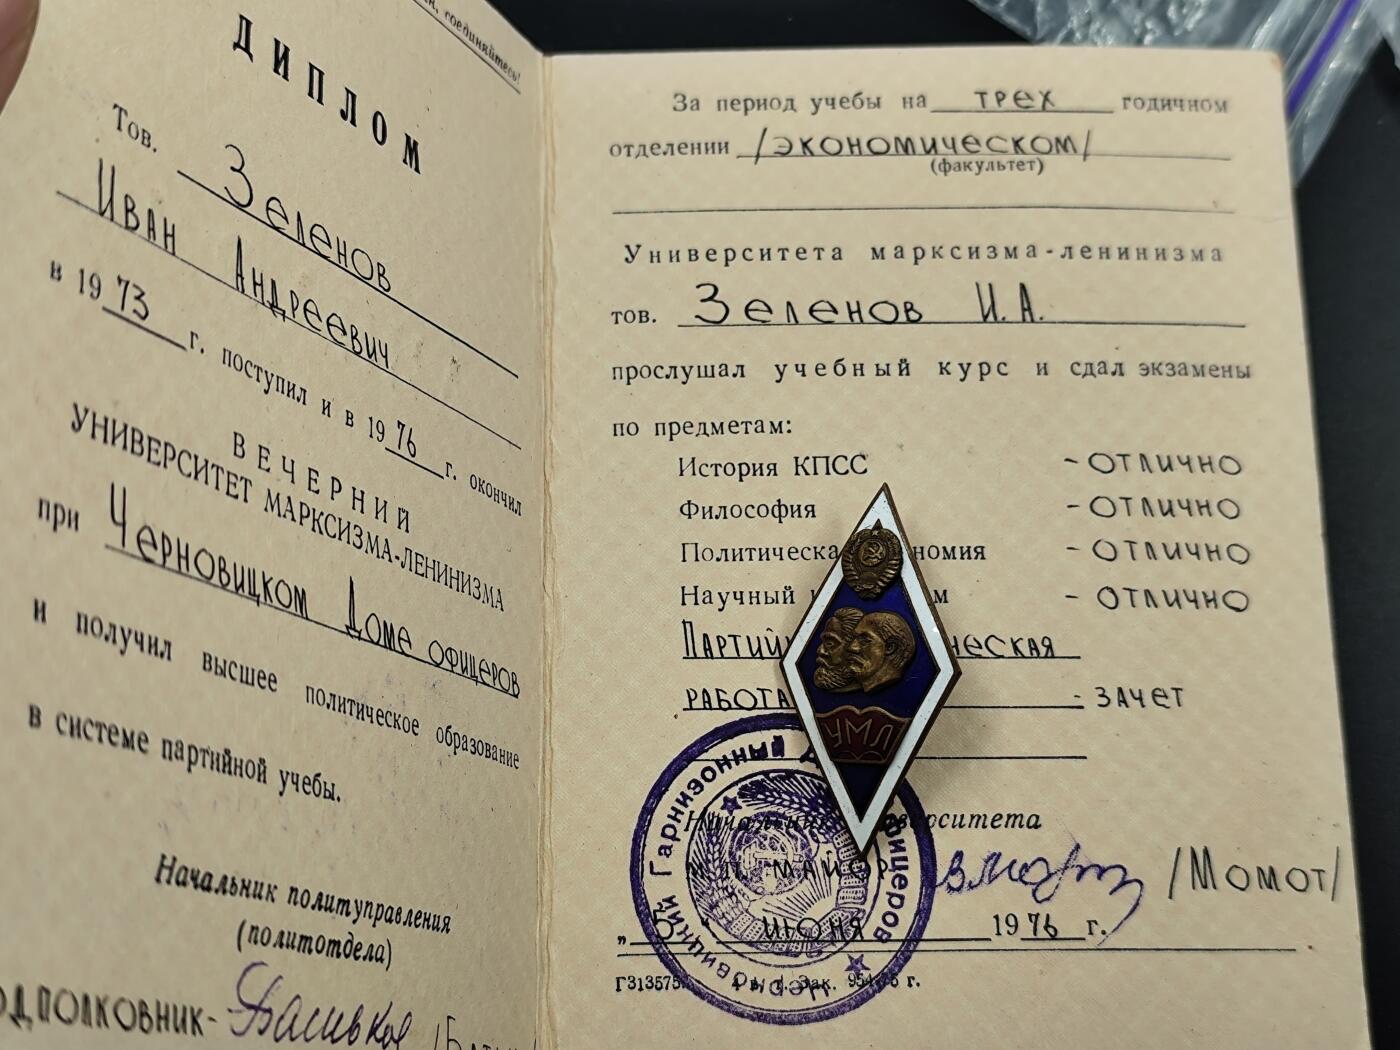 соединяйтесь!
ДИПЛОМ
Тов. Зеленов
Иван Андреевич
в 1973 г. поступил и в 1976 г. окончил
ВЕЧЕРНИЙ
УНИВЕРСИТЕТ МАРКСИЗМА-ЛЕНИНИЗМА
при Черновицком Доме офицеров
и получил высшее политическое образование
в системе партийной учебы.
Начальник политуправления
(политотдела)
За период учебы на трех годичном
отделении /экономическом/
(факультет)
Университета марксизма-ленинизма
тов. Зеленов И.А.
прослушал учебный курс и сдал экзамены
по предметам:
История КПСС - отлично
Философия - отлично
Политическа номия - отлично
Научный м - отлично
Партий ческая
работа - зачет
УМЛ
Начальник университета
М.П. майор /Момот/
июня 1976 г.
Г313575 Зак.
Черновицкий Гарнизонный Дом офицеров